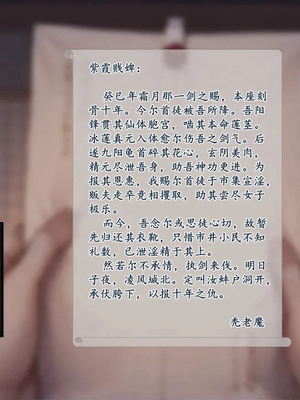 紫霞贱婢：
癸巳年霜月那一剑之赐，本座刻
骨十年。今尔首徒被吾所降。吾阳
锋贯其仙体胞宫，啮其本命莲茎。
冰莲真元入体愈尔伤吾之剑气。后
遂九阳龟首碎其花心，玄阴美肉，
精元尽泄吾身，助吾神功更进。为
报其恩惠，我赐尔首徒于市集宣淫，
贩夫走卒竞相攫取，助其尝尽女子
极乐。
而今，吾念尔或思徒心切，故暂
先归还其衣靴，只惜市井小民不知
礼数，已泄淫精于其上。
然若尔不承情，执剑来伐。明日
子夜，凌风城北。定叫汝蚌户洞开，
承伏胯下，以报十年之仇。
秃老魔